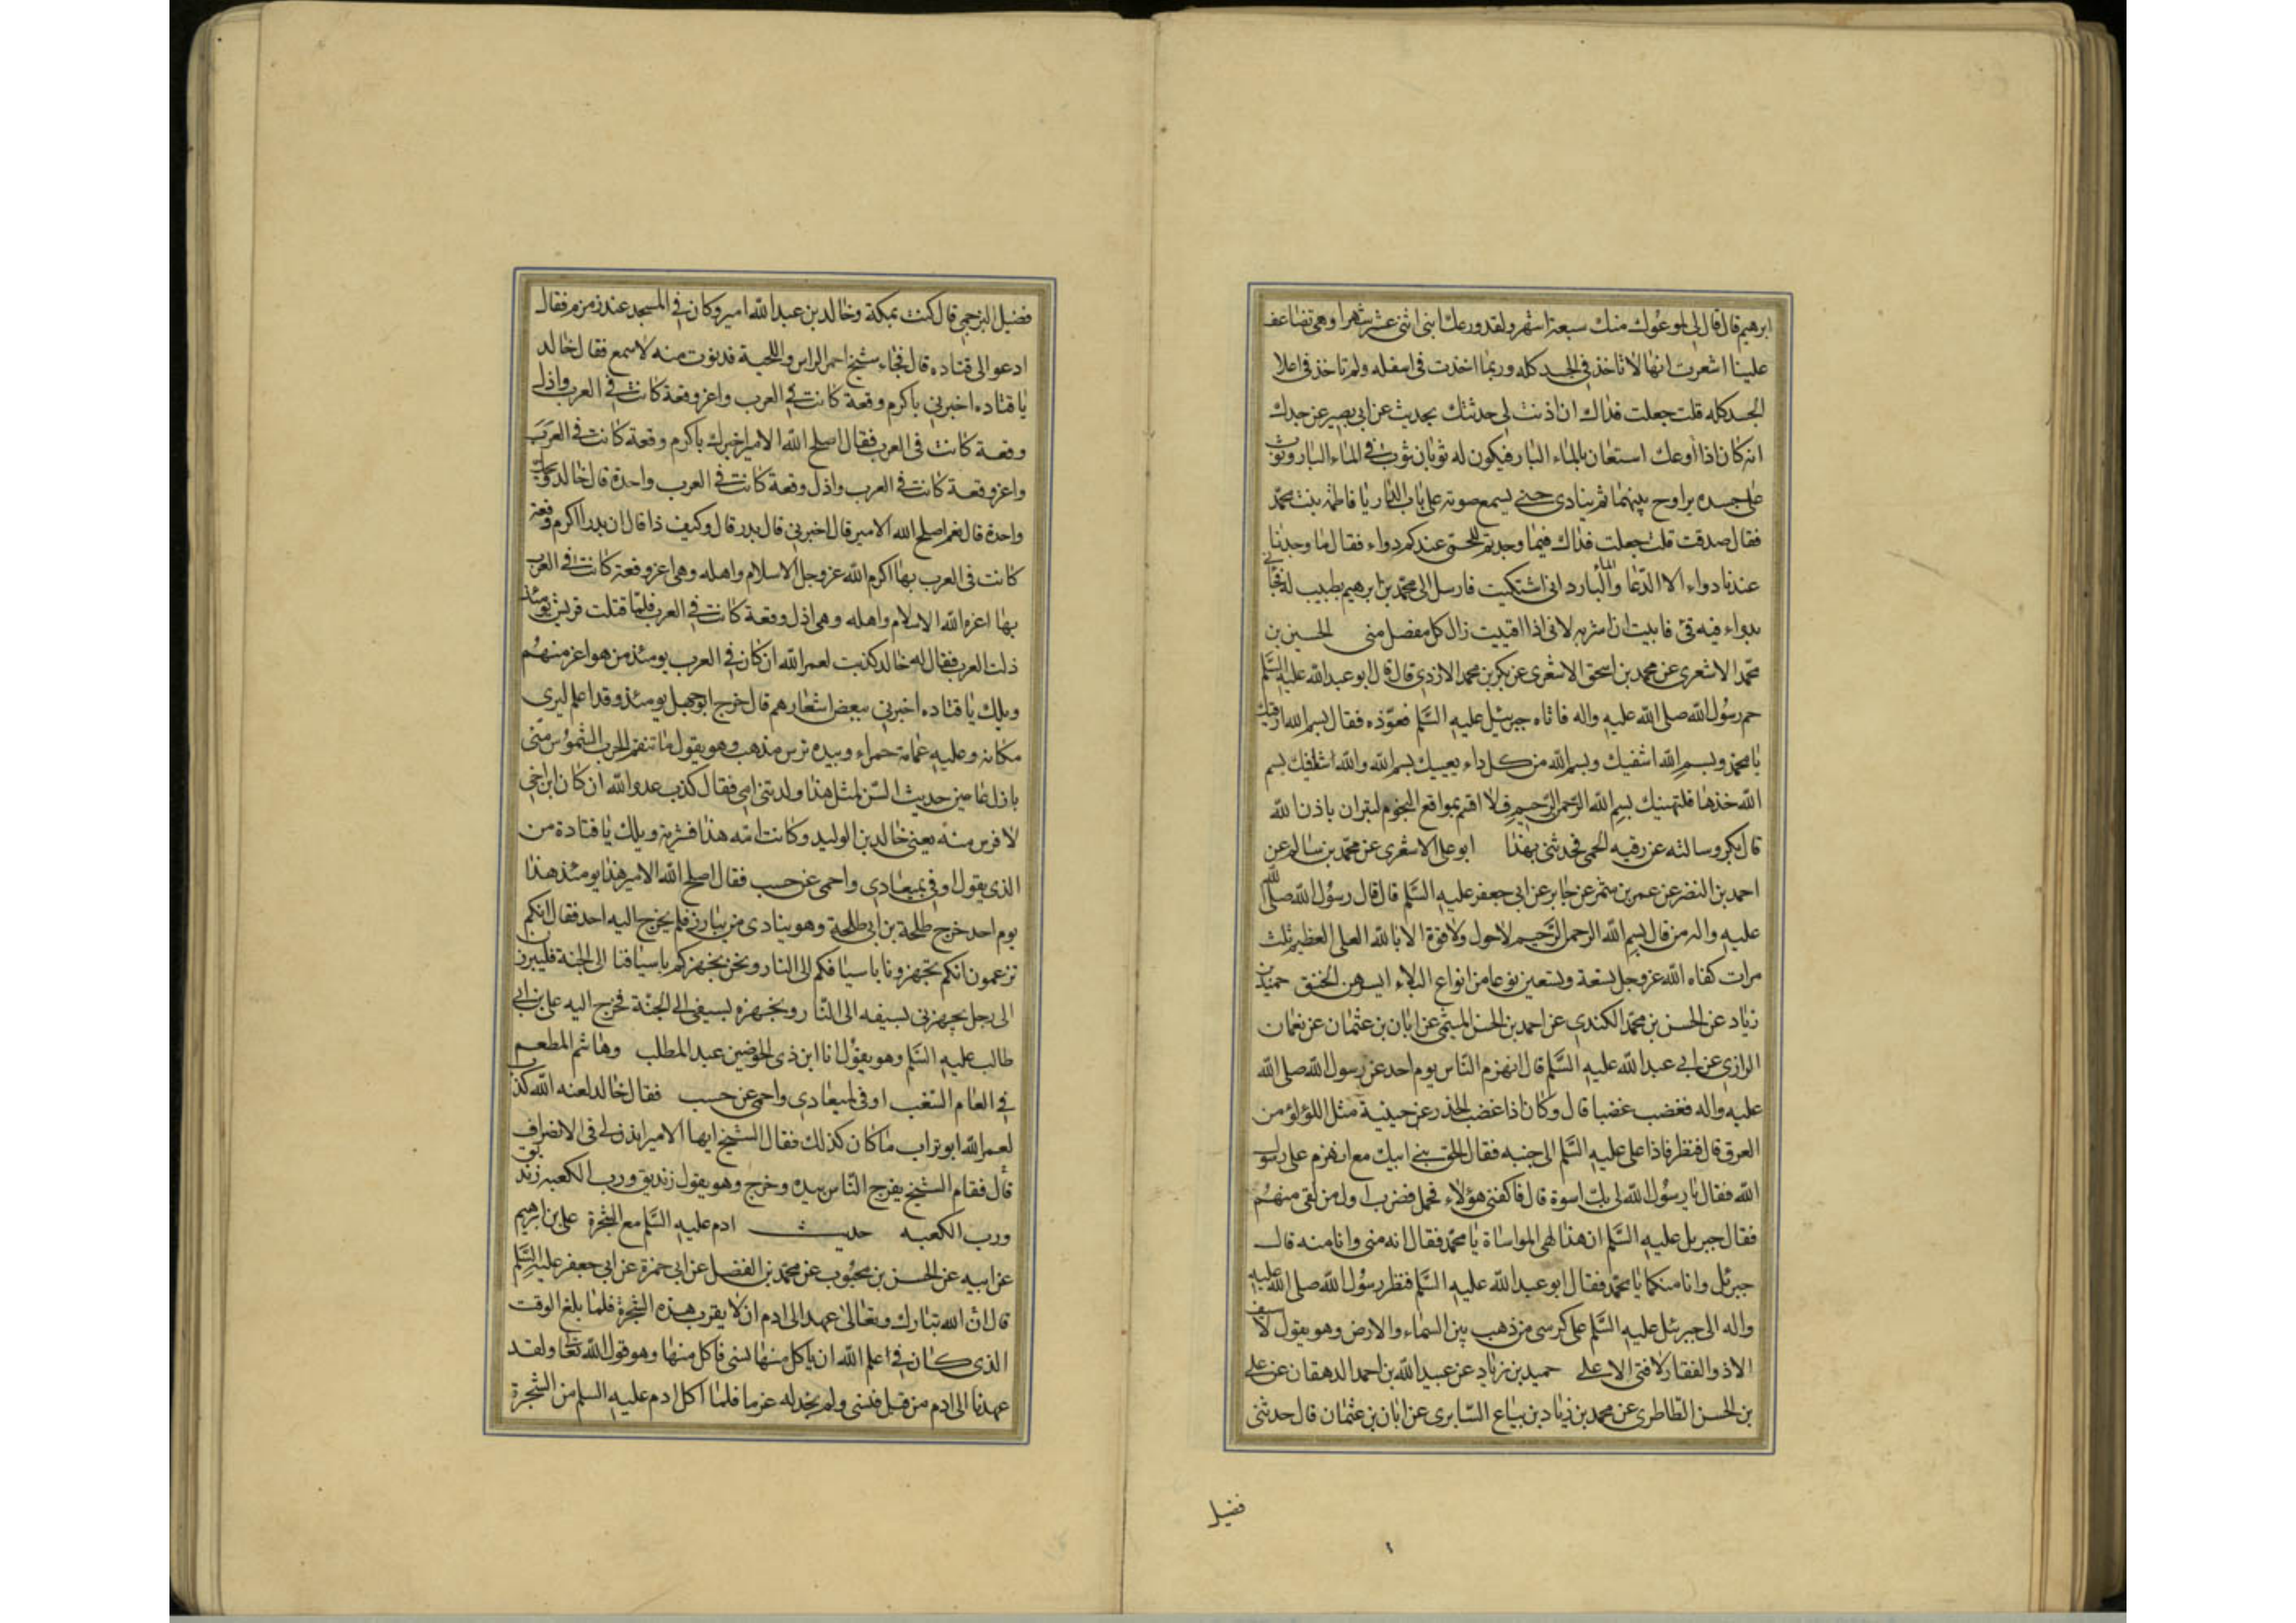 ابرهيم قال قال لى لموعوك منك سبعة اشهر ولقد وعك ابنى اثنى عشر شهرا وهى تضاعف
علينا اشعرت انها لا تاخذ فى الجسد كله وربما اخذت فى اسفله ولم تاخذ فى اعلا
الجسد كله قلت جعلت فداك ان اذنت لى حدثتك بحديث عن ابى بصير عن جدك
انه كان اذا اوعك استعان بالماء البار فيكون له ثوبان ثوب فى الماء البار وثوب
على جسده يراوح بينهما ثم ينادى حتى يسمع صوته على باب الدار يا فاطمة بنت محمد
فقال صدقت قلت جعلت فداك فيما وجدتم للحمى عندكم دواء فقال ما وجدنا
عندنا دواء الا الدعا والماء البارد انى اشتكيت فارسل الى محمد بن ابرهيم بطبيب له فجائى
بدواء فيه قئ فابيت ان اشربه لانى اذا اقييت زال كل مفصل منى الحسين بن
محمد الاشعرى عن محمد بن اسحق الاشعرى عن بكر بن محمد الازدى قال قال ابو عبد الله عليه السلم
حم رسول الله صلى الله عليه واله فاتاه جبرئيل عليه السلم فعوذه فقال بسم الله ارقيك
يا محمد وبسم الله اشفيك وبسم الله من كل داء يعييك بسم الله والله شافيك بسم
الله خذها فلتهنيك بسم الله الرحمن الرحيم فلا اقسم بمواقع النجوم لتبران باذن الله
قال بكر وسالته عن رقيه الحمى فحدثنى بهذا ابو على الاشعرى عن محمد بن سالم عن
احمد بن النضر عن عمر بن شمر عن جابر عن ابى جعفر عليه السلم قال قال رسول الله صلى الله
عليه واله من قال بسم الله الرحمن الرحيم لا حول ولا قوة الا بالله العلى العظيم ثلث
مرات كفاه الله عز وجل تسعة وتسعين نوعا من انواع البلاء ايسرهن الخنق حميد بن
زياد عن الحسن بن محمد الكندى عن احمد بن الحسن الميثمى عن ابان بن عثمان عن نعمان
الرازى عن ابى عبد الله عليه السلم قال انهزم الناس يوم احد عن رسول الله صلى الله
عليه واله فغضب غضبا قال وكان اذا غضب انحدر عن جبينه مثل اللؤلؤ من
العرق قال فنظر فاذا على عليه السلم الى جنبه فقال الحق ببنى ابيك مع انهزم على رسول
الله فقال يا رسول الله لى بك اسوة قال فاكفنى هؤلاء فحمل فضرب اول من لقى منهم
فقال جبريل عليه السلم ان هذا لهى المواساة يا محمد فقال انه منى وانا منه قال
جبرئل وانا منكما يا محمد فقال ابو عبد الله عليه السلم فنظر رسول الله صلى الله عليه
واله الى جبرئل عليه السلم على كرسى من ذهب بين السماء والارض وهو يقول لا سيف
الا ذو الفقار لا فتى الا على حميد بن زياد عن عبيد الله بن احمد الدهقان عن على
بن الحسن الطاطرى عن محمد بن زياد بن بياع السابرى عن ابان بن عثمان قال حدثنى
فضيل
فضيل البرجمى قال كنت بمكة وخالد بن عبد الله امير وكان فى المسجد عند زمزم فقال
ادعوا لى قتاده قال فجاء شيخ احمر الراس واللحية فدنوت منه لاسمع فقال خالد
يا قتاده اخبرنى باكرم وقعة كانت فى العرب واعز وقعة كانت فى العرب واذل
وقعة كانت فى العرب فقال اصلح الله الامير اخبرك باكرم وقعة كانت فى العرب
واعز وقعة كانت فى العرب واذل وقعة كانت فى العرب واحدة قال خالد ويحك
واحدة قال نعم اصلح الله الامير قال اخبرنى قال بدر قال وكيف ذا قال ان بدرا اكرم وقعة
كانت فى العرب بها اكرم الله عز وجل الاسلام واهله وهى اعز وقعة كانت فى العرب
بها اعز الله الاسلام واهله وهى اذل وقعة كانت فى العرب فلما قتلت قريش يومئذ
ذلت العرب فقال له خالد كذبت لعمر الله ان كان فى العرب يومئذ من هو اعز منهم
ويلك يا قتاده اخبرنى ببعض اشعارهم قال خرج ابو جهل يومئذ وقد اعلم ليرى
مكانه وعليه عمامة حمراء وبيده ترس مذهب وهو يقول ما تنقم الحرب الشموس منى
بازل عامين حديث السن لمثل هذا ولدتنى امى فقال كذب عدو الله ان كان ابن اخى
لافرس منه يعنى خالد بن الوليد وكانت امه هذا قشرية ويلك يا قتادة من
الذى يقول اوفى بميعادى واحمى عن حسب فقال اصلح الله الامير هذا يومئذ هذا
يوم احد خرج طلحة بن ابى طلحة وهو ينادى من يبارز فلم يخرج اليه احد فقال انكم
تزعمون انكم تجهزونا باسيافكم الى النار ونحن نجهزكم باسيافنا الى الجنة فليبرزن
الى رجل يجهزنى بسيفه الى النار واجهزه بسيفى الى الجنة فخرج اليه على بن ابى
طالب عليه السلم وهو يقول انا ابن ذى الحوضين عبد المطلب وهاشم المطعم
فى العام السغب اوفى بميعادى واحمى عن حسب فقال خالد لعنه الله كذب
لعمر الله ابو تراب ما كان كذلك فقال الشيخ ايها الامير ايذن لى فى الانصراف
قال فقام الشيخ يفرج الناس بيده وخرج وهو يقول زنديق ورب الكعبه زنديق
ورب الكعبه حديث ادم عليه السلم مع الشجرة على بن ابرهيم
عن ابيه عن الحسن بن محبوب عن محمد بن الفضل عن ابى حمزة عن ابى جعفر عليه السلم
قال ان الله تبارك وتعالى عهد الى ادم ان لا يقرب هذه الشجرة فلما بلغ الوقت
الذى كان فى علم الله ان ياكل منها نسى فاكل منها وهو قول الله تعا ولقد
عهدنا الى ادم من قبل فنسى ولم نجد له عزما فلما اكل ادم عليه السلم من الشجرة